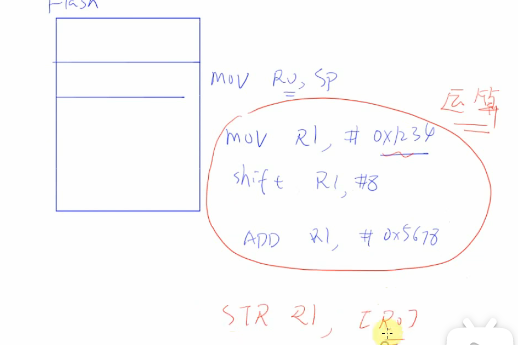 Flash
mov R0, SP
运算
mov R1, # 0x1234
shift R1, #8
ADD R1, # 0x5678
STR R1, [R0]